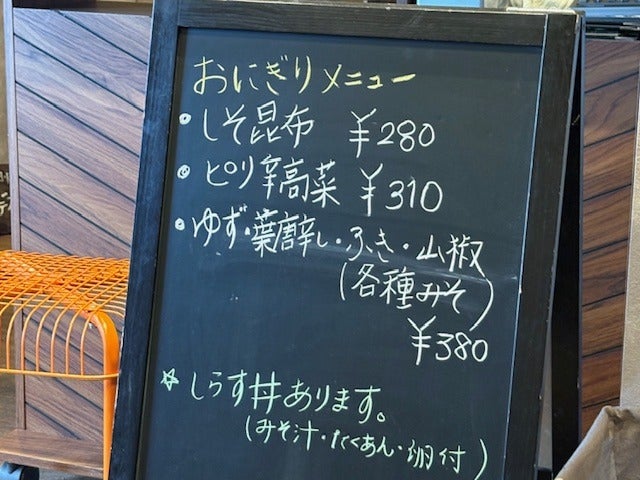 おにぎりメニュー
・しそ昆布 ¥280
・ピリ辛高菜 ¥310
・ゆず・葉唐辛し・ふき・山椒
(各種みそ)
¥380
☆しらす丼あります。
(みそ汁・たくあん・卵付)